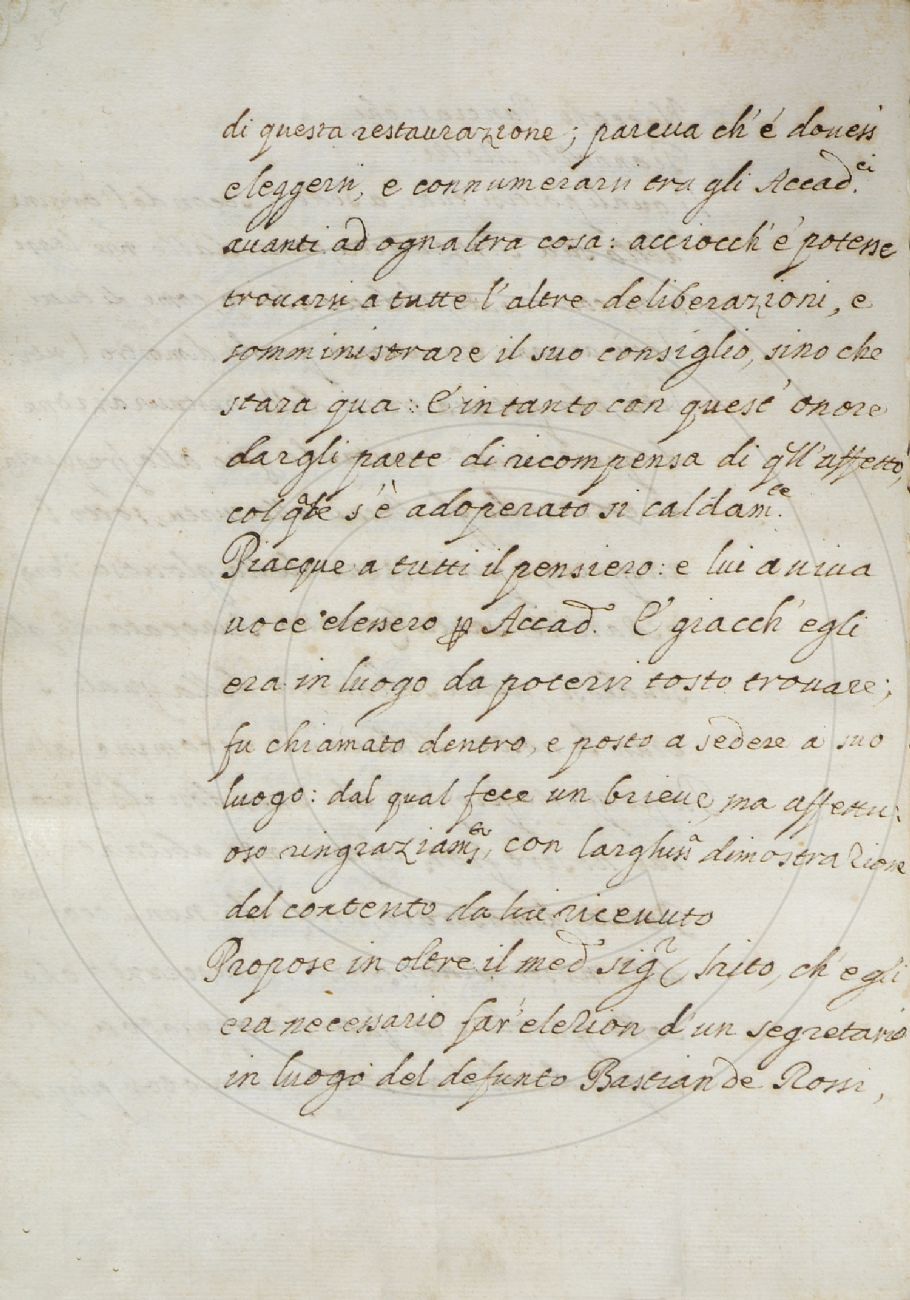 di questa restaurazione; pareua ch'é douess
eleggersi, e connumerarsi tra gli Accad.ci
auanti ad ognaltra cosa: acciocch'é potesse
trouarsi a tutte l'altre deliberazioni, e
somministrare il suo consiglio, sino che
stara qua: E' intanto con quest' onore
dargli parte di ricompensa di qll'affetto,
colqle s'è adoperato si caldam.te
Piacque a tutti il pensiero: e lui a viua
uoce elessero p Accad. E' giacch' egli
era in luogo da potersi tosto trouare;
fu chiamato dentro, e posto a sedere a suo
luogo: dal qual fece un brieue, ma affettu:
oso ringraziam.to, con larghiss.a dimostrazione
del contento da lui riceuuto
Propose in oltre il med. sig.r, ch'egli
era necessario far' elezion d'un segretario
in luogo del defunto Bastian de Rossi,